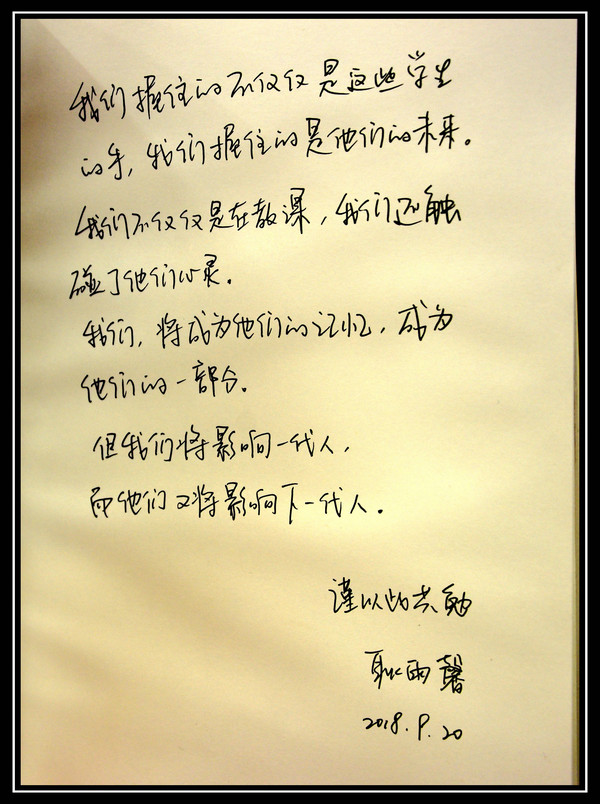 我们握住的不仅仅是这些学生
的手，我们握住的是他们的未来。
我们不仅仅是在教课，我们还触
碰了他们心灵。
我们，将成为他们的记忆，成为
他们的一部分。
但我们将影响一代人，
而他们又将影响下一代人。
谨以此共勉
耿雨馨
2018.9.20